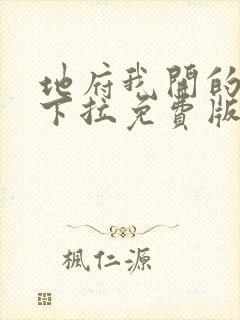 地府我開的
下拉免費版
楓仁源